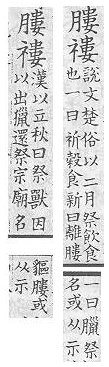 膢䄛
說文楚俗以二月祭飲食
也一曰祈穀食新曰離膢
一曰臘祭
名或从示
膢䄛
漢以立秋曰祭獸因
以出獵還祭宗廟名
貙膢或
从示